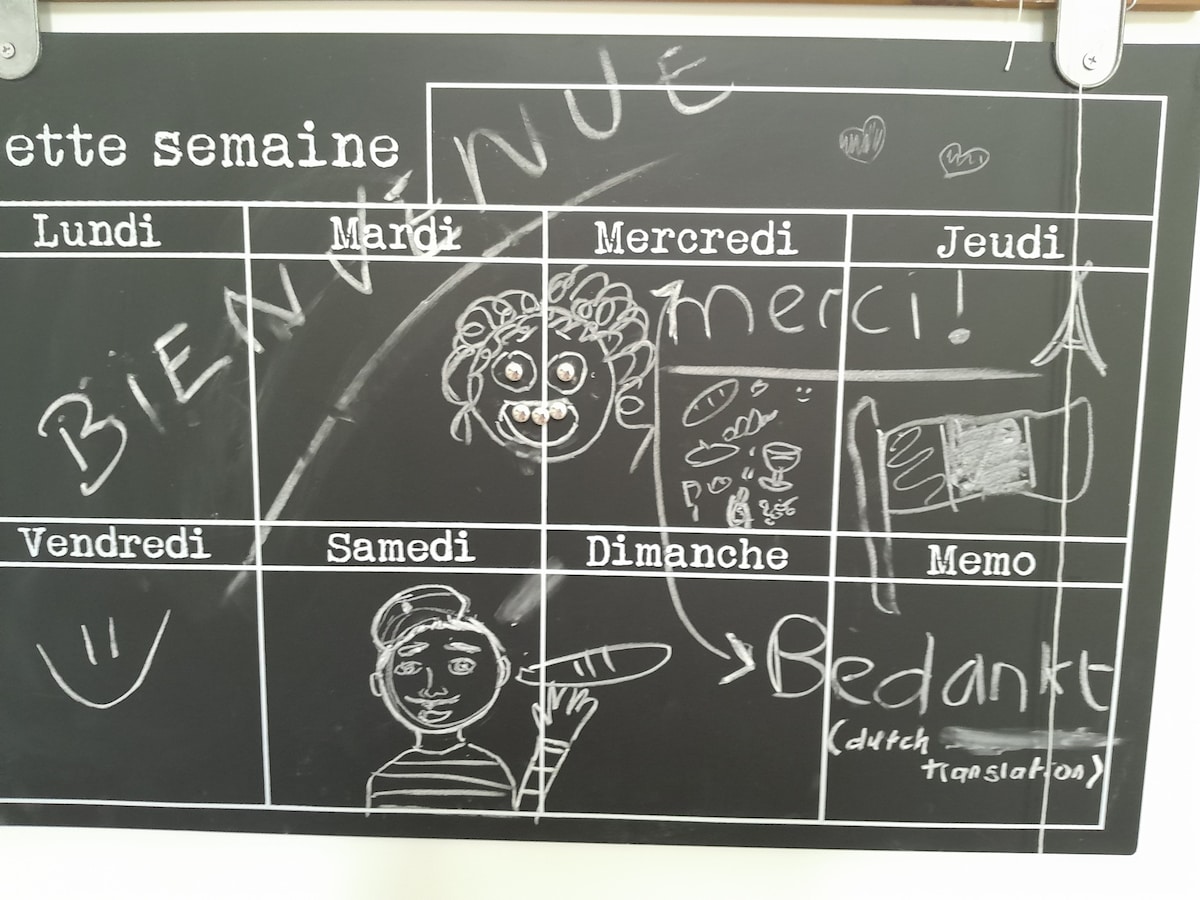 ette semaine
BIENVENUE
Lundi
Mardi
Mercredi
Jeudi
merci!
Vendredi
Samedi
Dimanche
Memo
Bedankt
(dutch
translation)